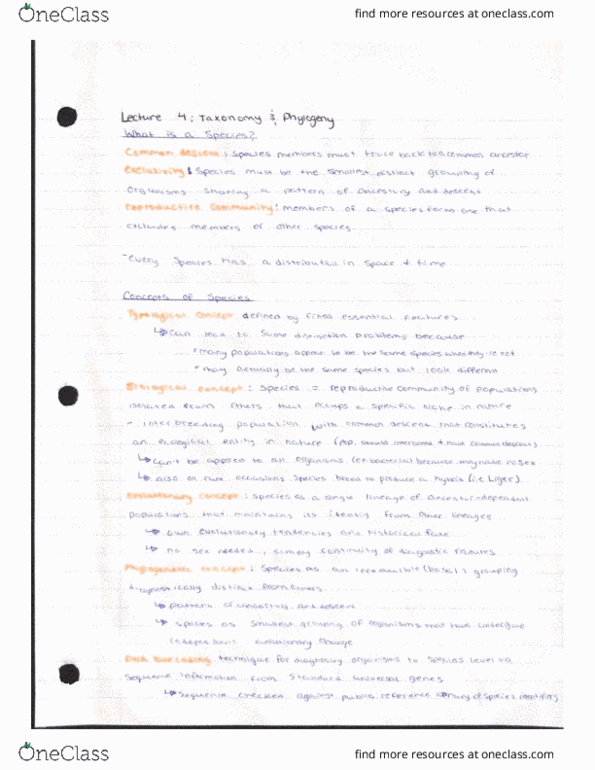 OneClass
find more resources at oneclass.com
Lecture 4: Taxonomy & Phylogeny
What is a Species?
Common descent: species members must trace back to a common ancestor
Exclusivity: species must be the smallest distinct grouping of
organisms sharing a pattern of ancestry and descent
reproductive community: members of a species form one that
excludes members of other species
- every species has a distribution in space + time
Concepts of Species
Typological concept: defined by fixed essential features
↳ can lead to some distinction problems because
* many populations appear to be the same species when they're not
* may actually be the same species but look different
Biological concept: species = reproductive community of populations
isolated from others that occupy a specific niche in nature
- interbreeding population with common descent that constitutes
an ecological entity in nature (pop. should interbreed + have common descent)
↳ can't be applied to all organisms (ex. bacteria) because may have no sex
↳ also on rare occasions species breed to produce a hybrid (i.e. Liger)
Evolutionary concept: species as a single lineage of ancestor-dependent
populations that maintains its identity from other lineages
↳ own evolutionary tendencies and historical fate
↳ no sex needed, simply continuity of diagnostic features
Phylogenetic concept: species as an irreducible (basal) grouping
diagnostically distinct from others
↳ pattern of ancestry and descent
↳ species as smallest grouping of organisms that have undergone
independent evolutionary change
DNA barcoding: technique for diagnosing organisms to species level via
sequence information from standard universal genes
↳ sequence checked against public reference library of species identifiers
OneClass
find more resources at oneclass.com